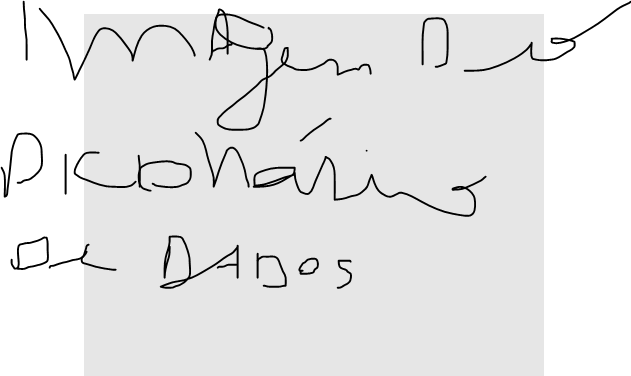 Imagem Do
Dicionário
De DADOS